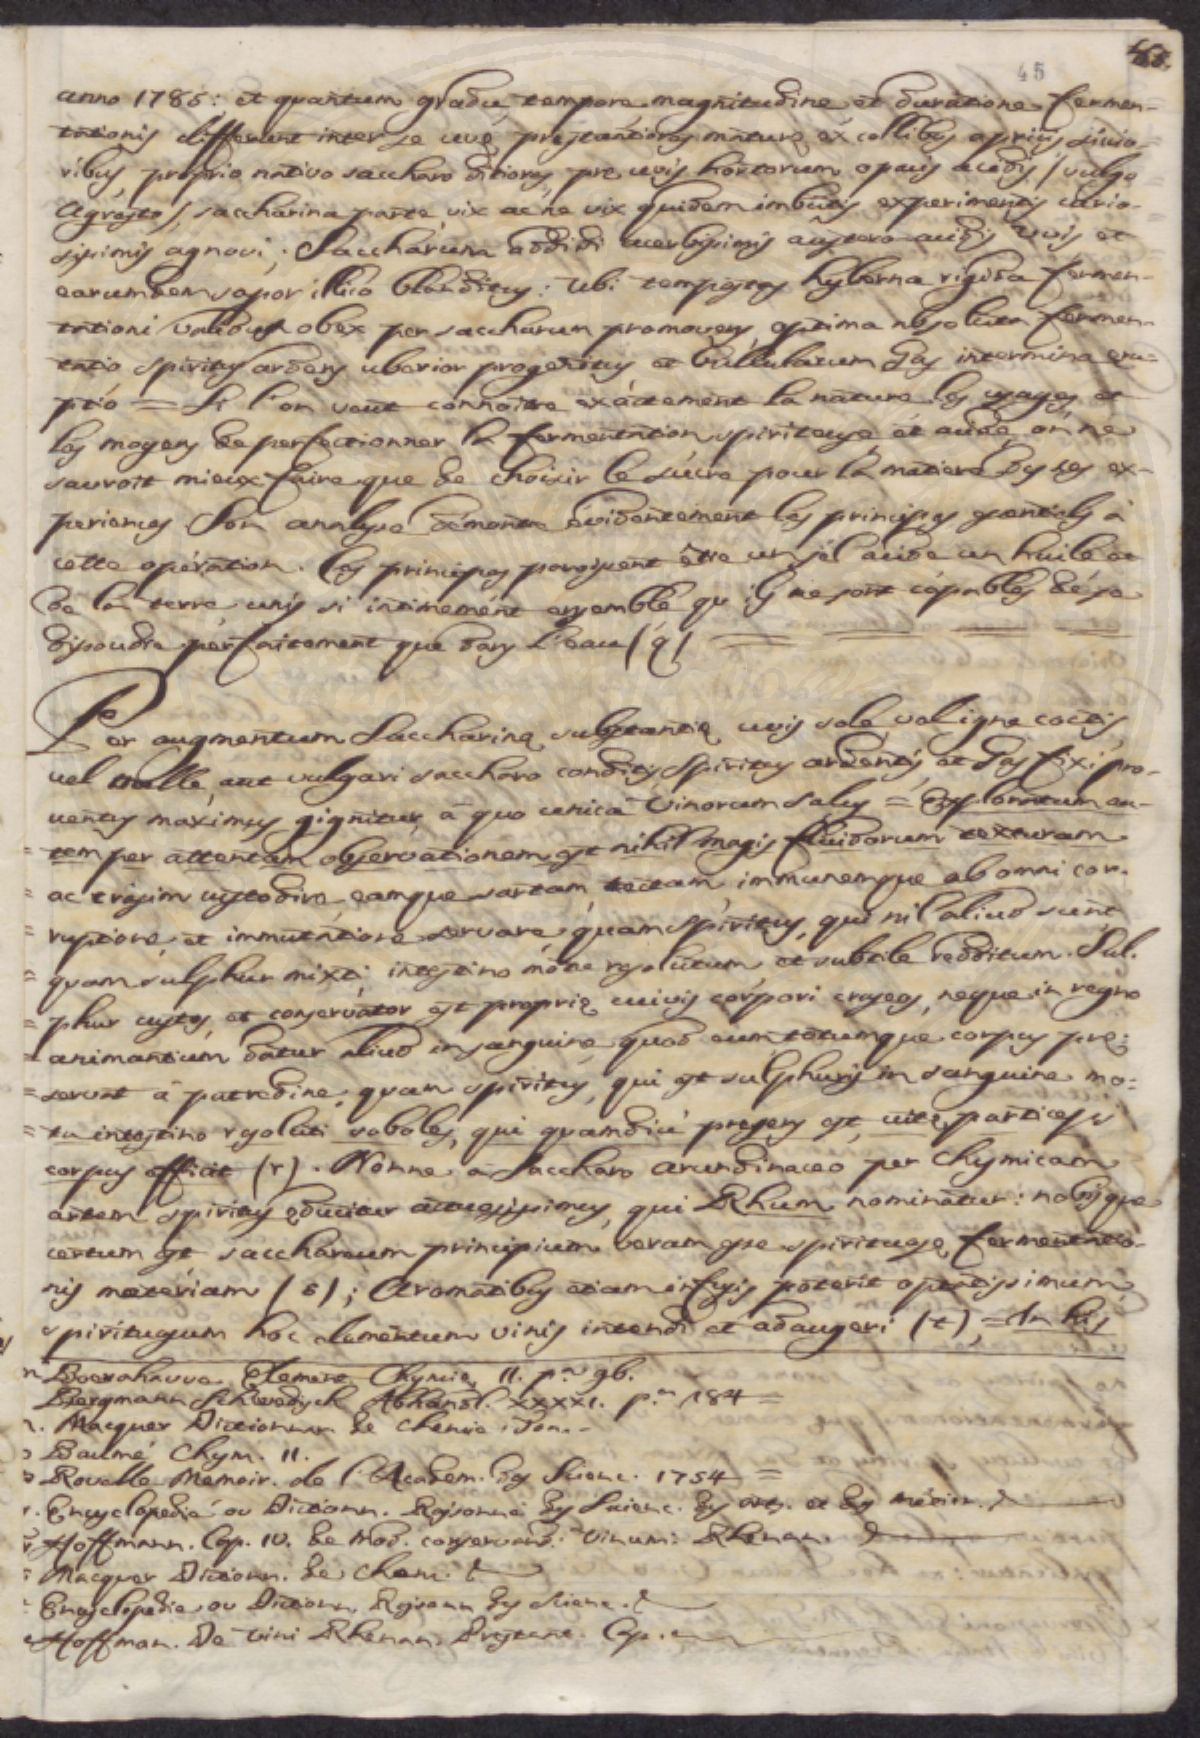 45
anno 1785: et quantum gradu, tempore magnitudine et duratione fermen-
tationis different inter se uvę prestantiores maturę ex collibus apricis sicio-
ribus, proprio nativo saccharo ditiores, pre uvis hortorum opacis acidis / vulgo
Agresto /, saccharina parte vix ac ne vix quidem imbutis experimentis curio-
sissimis agnovi; Saccharum addidi acerbissimis austero acidis uvis et
earumdem sapor illico blanditus: Ubi tempestas hyberna rigida fermen-
tationi validus obex per saccharum promovens, optima absoluta fermen-
tatio spiritus ardens uberior progenitus et bullularum Gas intermina eru-
ptio = Si l'on veut connoitre exactement la nature les usages, et
les moyens de perfectionner la fermentation spirituese et acide, on ne
sauroit mieux faire que de choisir le sucre pour la matiere des ses ex-
periences Son analyse demontre evidentement les principes essentiels à
cette opération. Ces principes paroissent être un sel acide un huile et
de la terre unis si intimemént ensemble qu'ils ne sont capables de se
dissoudre perfaitement que dans l'eau / q /
Per augmentum Saccharinę substantię uvis sole, vel igne coctis
vel melle, aut vulgari saccharo conditis Spiritus ardentis, et Gas fixi pro-
ventus maximus gignitur, à quo unica Vinorum salus = Exploratum au-
tem per attentam observationem est nihil magis fluidorum texturam
ac crasim custodire, eamque sartam, tectam, immunemque ab omni cor-
ruptione et immutatione servare, quam spiritus, qui nil aliud sunt
quam sulphur mixti, intestino motu resolutum et subtile redditum. Sul-
phur custos, et conservator est proprię cuivis corpori craseos, neque in regno
animantium datur aliud in sanguine, quod eum totumque corpus prę-
servat à putredine, quam spiritus, qui est sulphuris in sanguine mo-
tu intestino resoluti soboles, qui quamdiù presens est, vitę particeps
corpus efficit (r). Nonne a Saccharo arundinaceo per Chymicam
artem spiritus educitur actuosissimus, qui Rhum nominatur: nobisque
certum est saccharum principium veram esse spirituosę fermentatio-
nis materiam / s /; Aromatibus etiam infusis poterit optatissimum
spirituosum hoc elementum vinis intendi et adaugeri (t), = In his
Boerahauve Element. Chymię II. p.ª 96.
Bergmann Schwedisch Abhandl. XXXXI. p.ª 184 =
Macquer Dictionnar. de Chemie. Ton.
Baumé Chym. II.
Rouelle Memoir. de l'Academ. des Scienc. 1754 =
Encyclopedie ou Dictionn. Raisonné des Scienc. des arts. et des metier.
Hoffmann. Cap. IV. de Mod. conservand. Vinum Rhenan.
Macquer Dictionn. de Chem.
Encyclopedie ou Dictionn. Raisonn des Scienc.
Hoffman. De Vini Rhenan. Prestant. Cap.